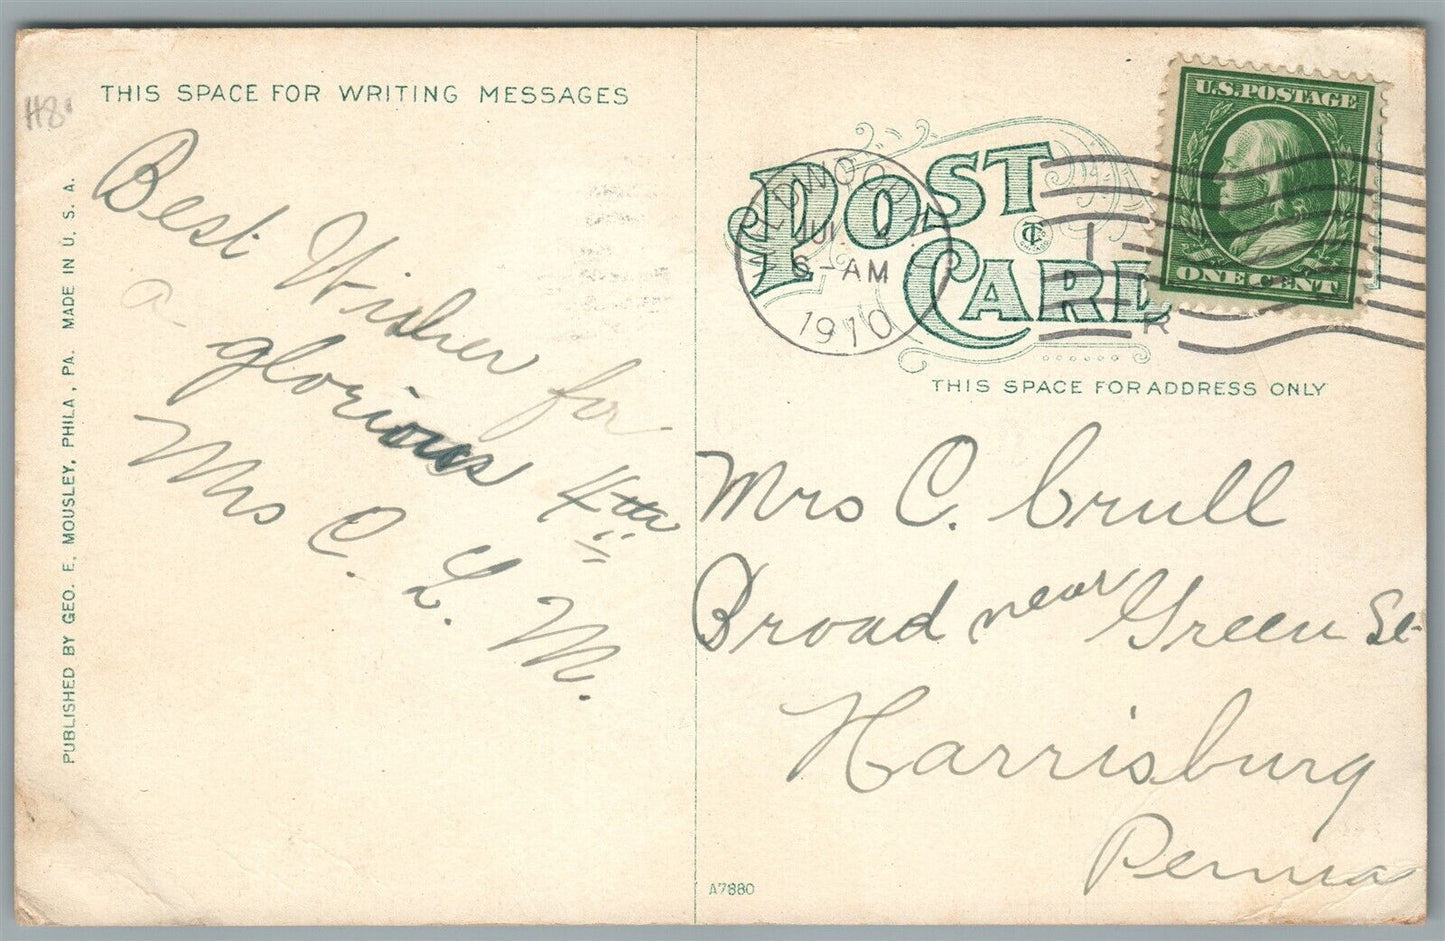 THIS SPACE FOR WRITING MESSAGES
H8
Best Wishes for
a
glorious 4th
Mrs C. L. M.
PUBLISHED BY GEO. E. MOUSLEY, PHILA, PA. MADE IN U. S. A.
POST CARD
WILDWOOD
JUL 4
6-AM
1910
U.S. POSTAGE
ONE CENT
THIS SPACE FOR ADDRESS ONLY
Mrs C. Crull
Broad near Green St
Harrisburg
Penna
A7880